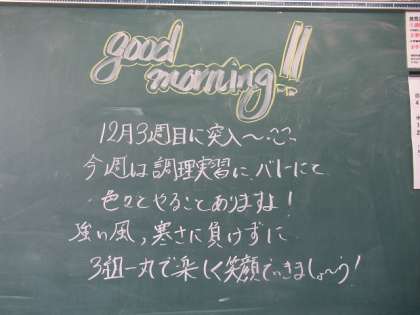 good
morning!!
12月3週目に突入〜
今週は調理実習に、バレーにと
色々とやることありますよ!
強い風、寒さに負けずに
3組一丸で楽しく笑顔でいきましょう!